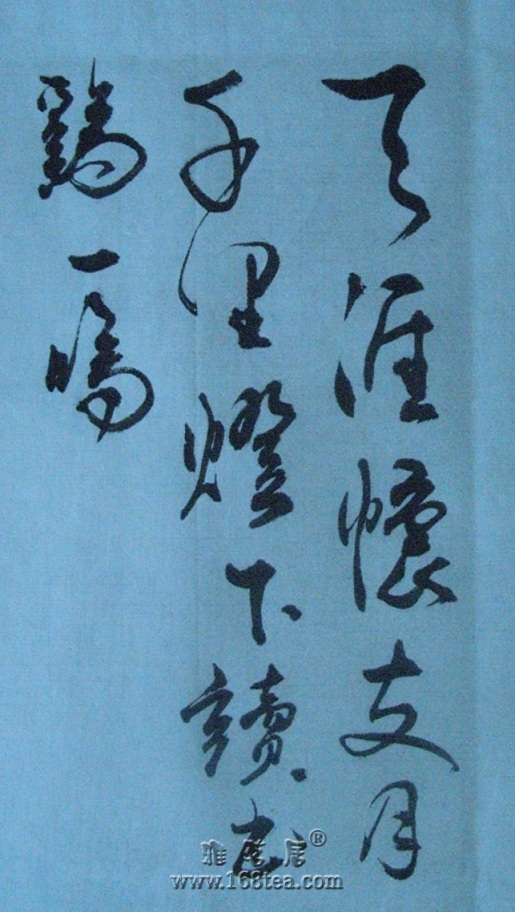 天涯懷友月
千里燈下讀書
鷄一鳴
雅茗居®
www.168tea.com